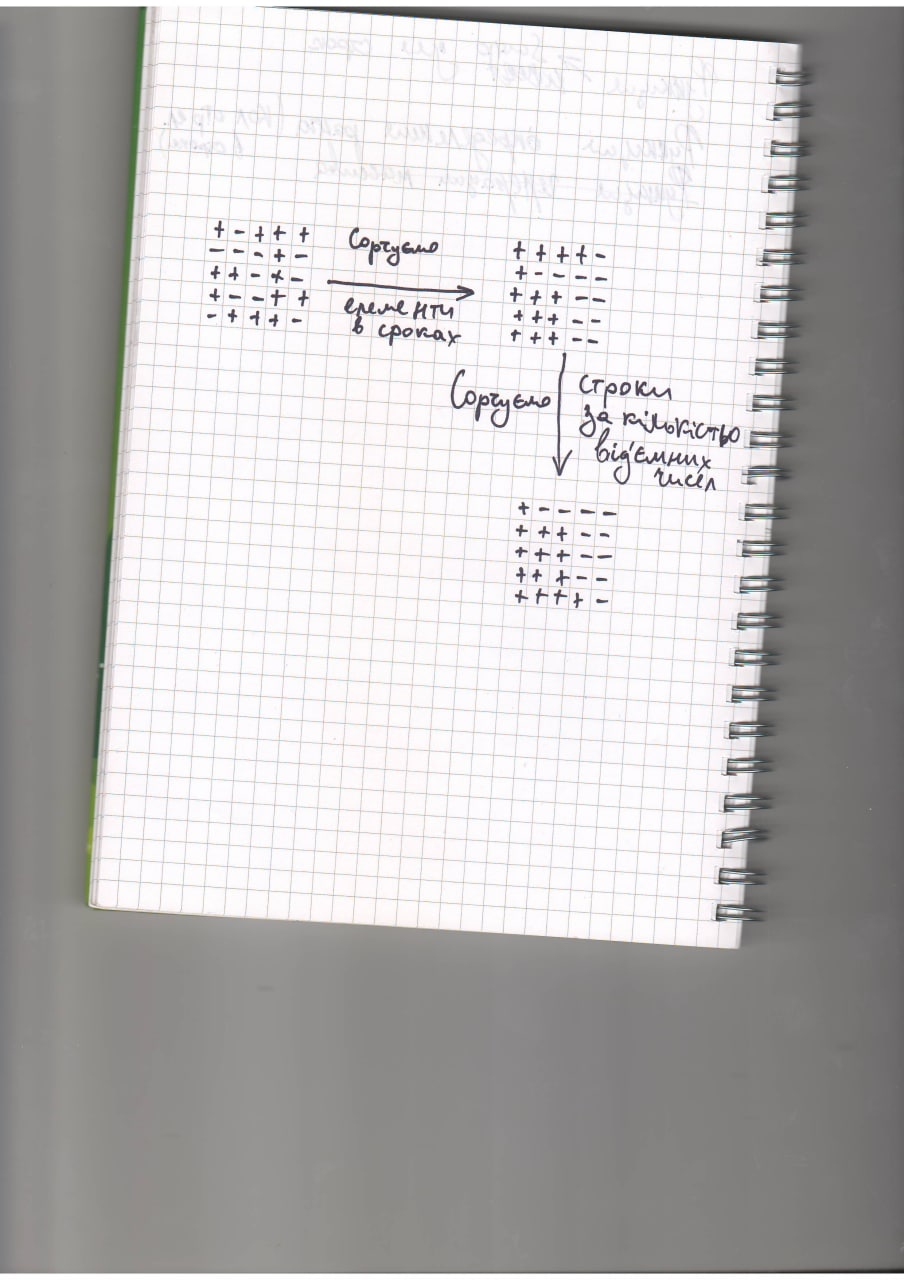 + - + + +
- - - + -
+ + - + -
+ - - + +
- + + + -
Сортуємо
елементи
в сроках
+ + + + -
+ - - - -
+ + + - -
+ + + - -
+ + + - -
Сортуємо
строки
за кількістю
від'ємних
чисел
+ - - - -
+ + + - -
+ + + - -
+ + + - -
+ + + + -